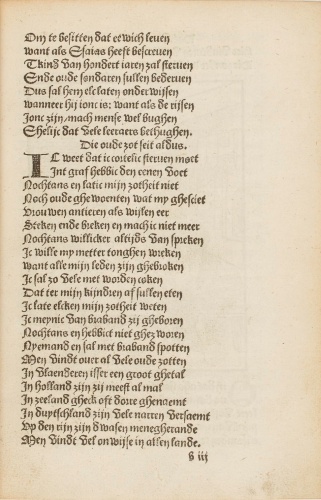 Om te besitten dat eewich leuen
want als Esaias heeft bescreuen
Tkind van hondert iaren zal steruen
Ende oude sondaren sullen bederuen
Dus sal hem elc laten onderwijsen
wanneer hij ionc is: want als de rijsen
Jonc zijn/mach mense wel bughen
Ghelijc dat vele leeraers bethughen.
Die oude zot seit aldus.
IC weet dat ic cortelic steruen moet
Int graf hebbic den eenen voet
Nochtans en latic mijn zotheit niet
Noch oude ghewoenten wat my ghesciet
Vrouwen antieren als wijlen eer
Steken ende breken en mach ic niet meer
Nochtans willicker altijds van spreken
Ic wille my metter tonghen wreken
want alle mijn leden zijn ghebroken
Ic sal zo vele met worden coken
Dat ter mijn kijndren af sullen eten
Ic late elcken mijn zotheit weten
Ic meynic van braband zij gheboren
Nochtans en hebbict niet ghezworen
Nyemand en sal met braband spotten
Men vindt ouer al vele oude zotten
In vlaenderen isser een groot ghetal
In holland zijn zij meest al mal
In zeeland gheck oft dorre ghenaemt
In duytschland zijn vele narren versaemt
Vp den rijn zijn dwasen menegherande
Men vindt vel onwijse in allen lande.
b iij